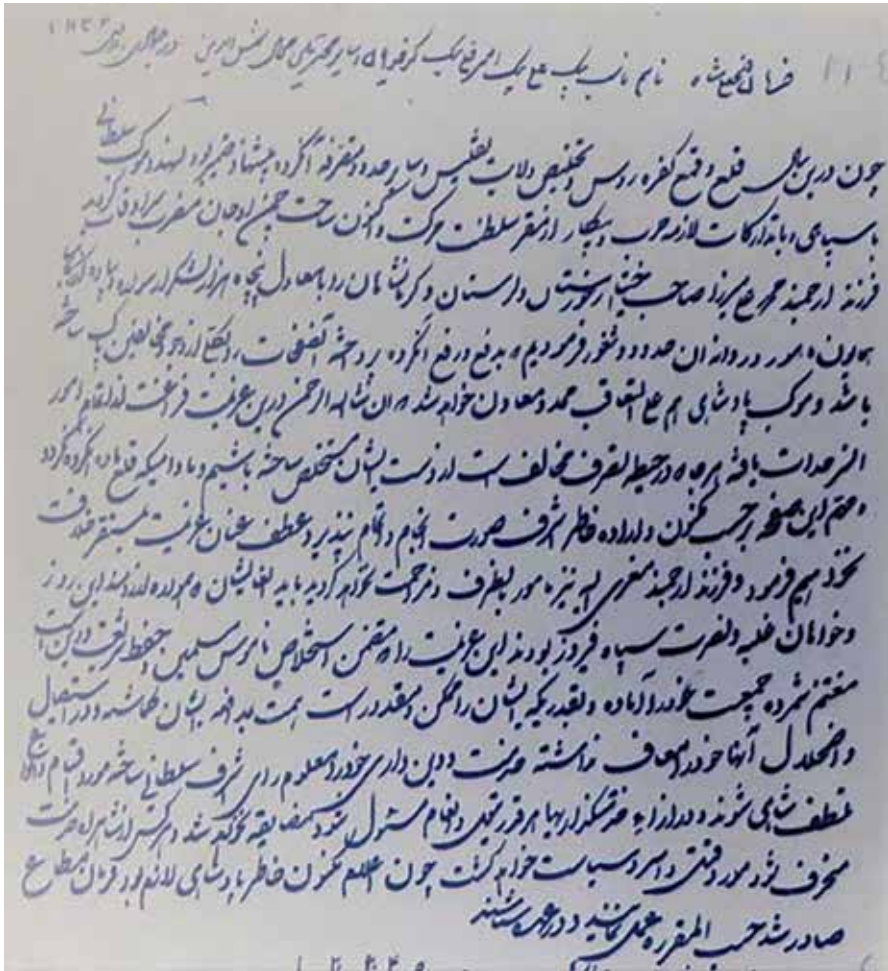 فرمان فتحعلیشاه بنام نایب بیک علی بیک
چون درین سال قلع و قمع کفره روس و تخلیص ولایت تفلیس و سایر حدود متفرقه آنگروه پیشنهاد ضمیر بود لهذا موکب سلطانی
با سپاهی و با تدارکات لازمه حرب و پیکار از مقر سلطنت حرکت و اکنون ساحت چمن اوجان مضرب سرادقات گردید
فرزند ارجمند محمد علی میرزا صاحب اختیار خوزستان و لرستان و کرمانشاهان را با معادل پنجاه هزار لشکر از سواره و پیاده
همایون مامور و روانه ان حدود و ثغور فرمودیم که بدفع و رفع انگروه پرداخته آنصفحات را بالکلیه از وجود مخالفین پاک ساخته
باشد و موکب پادشاهی هم علی التعاقب ممد و معاون خواهد شد که ان شاء الله الرحمن درین عزیمت فراغت از انتظام امور
السرحدات یافته هر جا که در حیطه تصرف مخالف است از دست ایشان مستخلص ساخته باشیم و مادامیکه قلع ماده انگروه نگردد
و مهام این صفحه بر حسب مکنون و اراده خاطر اشرف صورت انجام و اتمام نپذیرد عطف عنان عزیمت بمستقر خلافت
نخواهیم فرمود و فرزند ارجمند معزی الیه نیز مامور بطرف و مراجعت نخواهد گردید باید ایشان که همواره ارزومند این روز
و خواهان غلبه و نصرت سپاه فیروز بودند این عزیمت را که متضمن استخلاص ناموس مسلمین و حفظ شریعت و دین است
مغتنم شمرده جمعیت خود را آماده و بقدریکه ایشان را ممکن و مقدور است همت بمدافعه ایشان گماشته و در استیصال
و اضمحلال آنها خود را معاف نداشته خدمت و دین داری خود را معلوم رای اشرف سلطانی ساخته مورد
تلطف شاهی شوند و در ازای خدمتگذاریها هر قدر تجلی و انعام مسئول شود مضایقه نخواهد شد و هر کس از شاهراه خدمت
منحرف شود مورد قتل و اسر و سیاست خواهد گشت چون اعلام مکنون خاطر پادشاهی لازم بود فرمان مطاع
صادر شد حسب المقرره عمل نمایند و در عهده شناسند